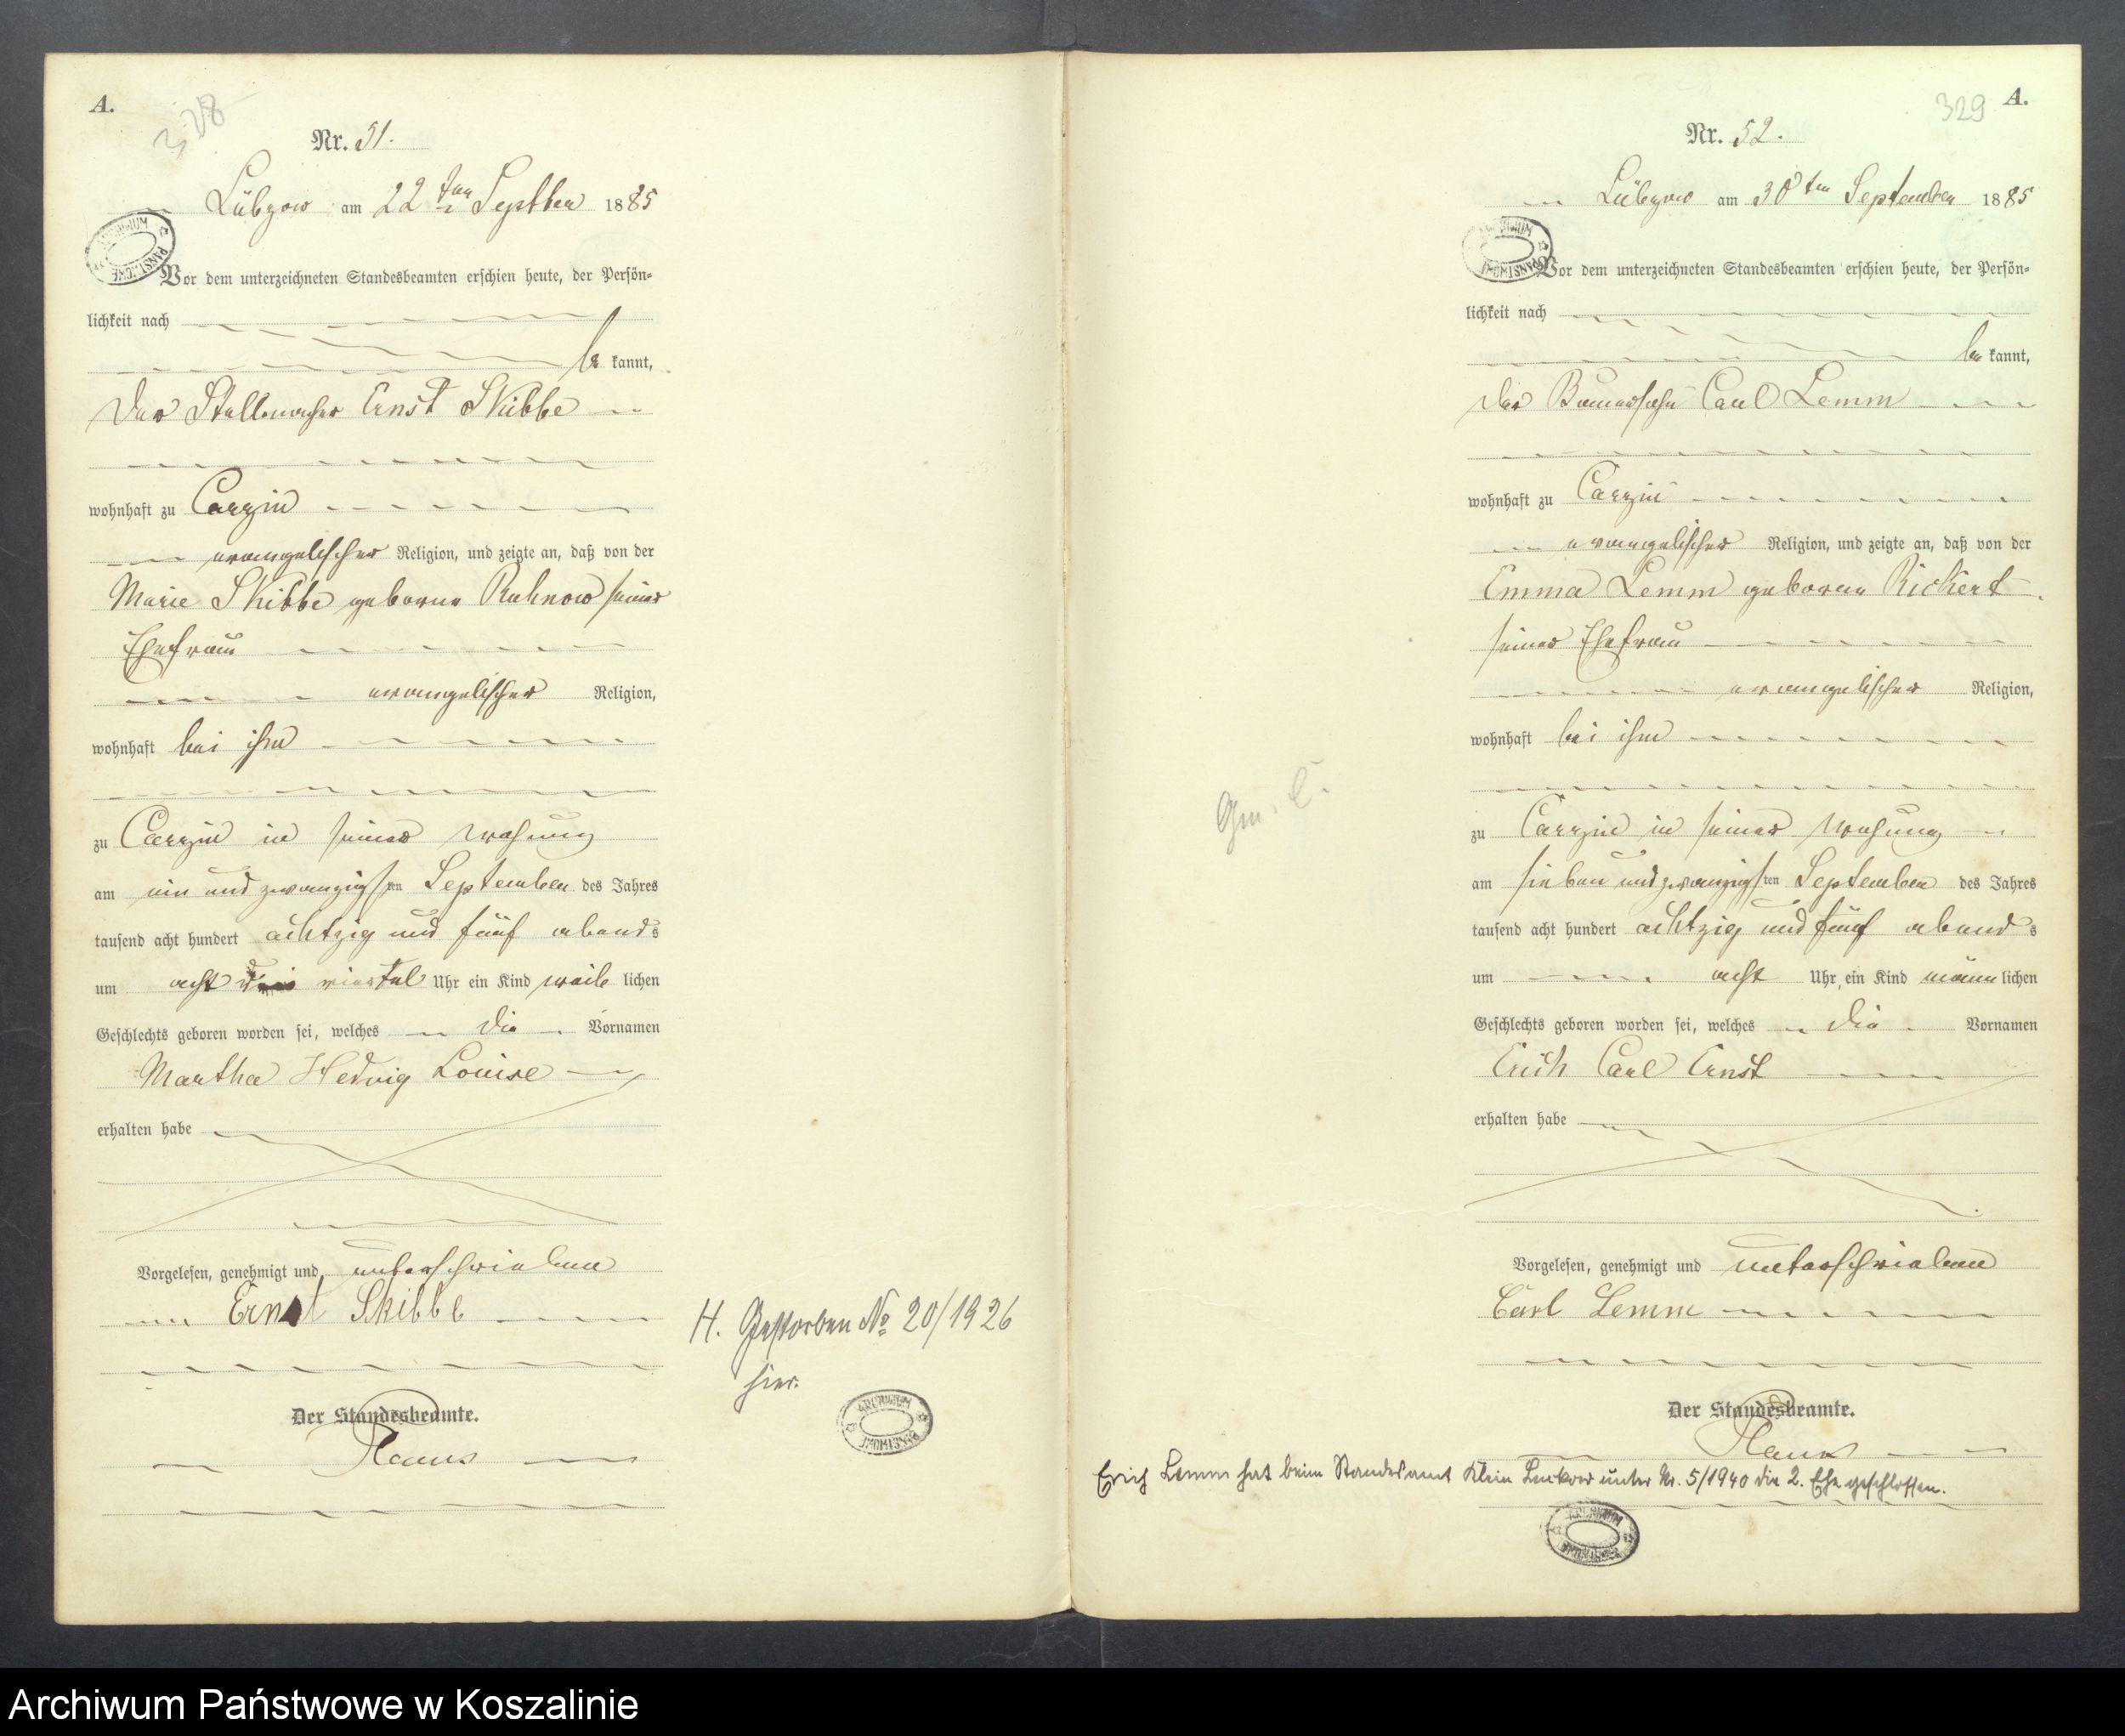 A.
328
Nr. 51.
Lübzow am 22ten Septber 1885
ARCHIWUM PAŃSTWOWE
Vor dem unterzeichneten Standesbeamten erschien heute, der Persön-
lichkeit nach
be kannt,
der Stellmacher Ernst Skibbe
wohnhaft zu Carzin
evangelischer Religion, und zeigte an, daß von der
Marie Skibbe geborne Ruhnow seiner
Ehefrau
evangelischer Religion,
wohnhaft bei ihm
zu Carzin in seiner Wohnung
am ein und zwanzigsten September des Jahres
tausend acht hundert achtzig und fünf abends
um acht drei viertel Uhr ein Kind weib lichen
Geschlechts geboren worden sei, welches die Vornamen
Martha Hedwig Louise
erhalten habe
Vorgelesen, genehmigt und unterschrieben
Ernst Skibbe
H. Gestorben No 20/1926
hier.
Der Standesbeamte.
ARCHIWUM PAŃSTWOWE
329
A.
Nr. 52.
Lübzow am 30ten September 1885
ARCHIWUM PAŃSTWOWE
Vor dem unterzeichneten Standesbeamten erschien heute, der Persön-
lichkeit nach
be kannt,
der Bauersohn Carl Lemm
wohnhaft zu Carzin
evangelischer Religion, und zeigte an, daß von der
Emma Lemm geborne Rickert
seiner Ehefrau
evangelischer Religion,
wohnhaft bei ihm
zu Carzin in seiner Wohung
am sieben und zwanzigsten September des Jahres
tausend acht hundert achtzig und fünf abends
um acht Uhr, ein Kind männ lichen
Geschlechts geboren worden sei, welches die Vornamen
Erich Carl Ernst
erhalten habe
Vorgelesen, genehmigt und unterschrieben
Carl Lemm
Der Standesbeamte.
Erich Lemm hat beim Standesamt Klein unter Nr. 5/1940 die 2. Ehe geschlossen.
ARCHIWUM PAŃSTWOWE
Archiwum Państwowe w Koszalinie